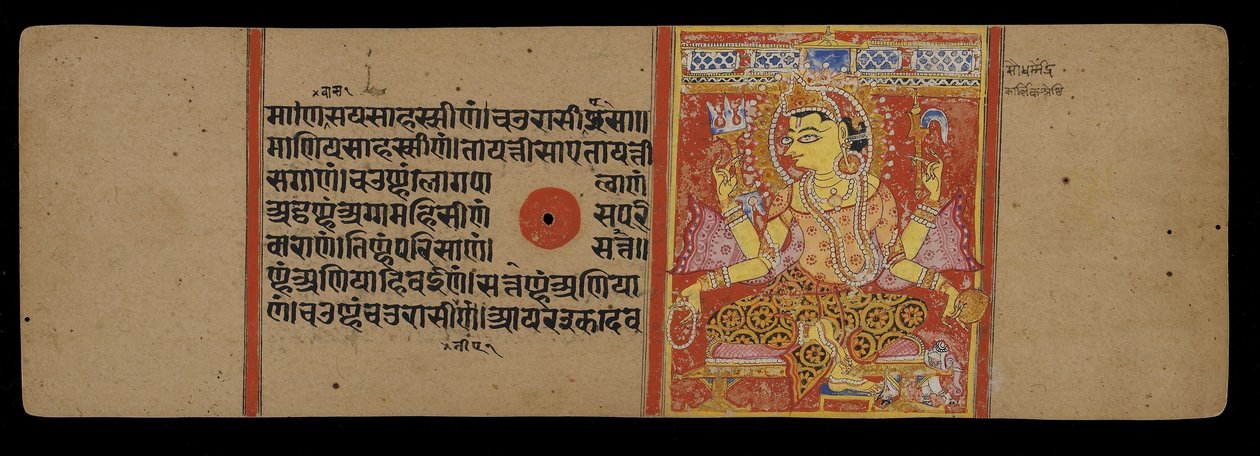 वास
माणसयसाहस्सीणं।चउरासीईएसा॥
माणियसाहस्सीणं।तायत्तीसाएतायत्ती
सगाणं।चउण्हंलोगपा लाणं
अट्ठण्हंअग्गमहिसीणं सपरि
वाराणं।तिण्हंपरिसाणं। सत्त॥
ण्हंअणियाहिवईणं।सत्तण्हंअणिया
णं।चउण्हंचउरासीणं।आयरक्खदेव
सौधर्मेंद्र
कार्तिकश्रेष्टि